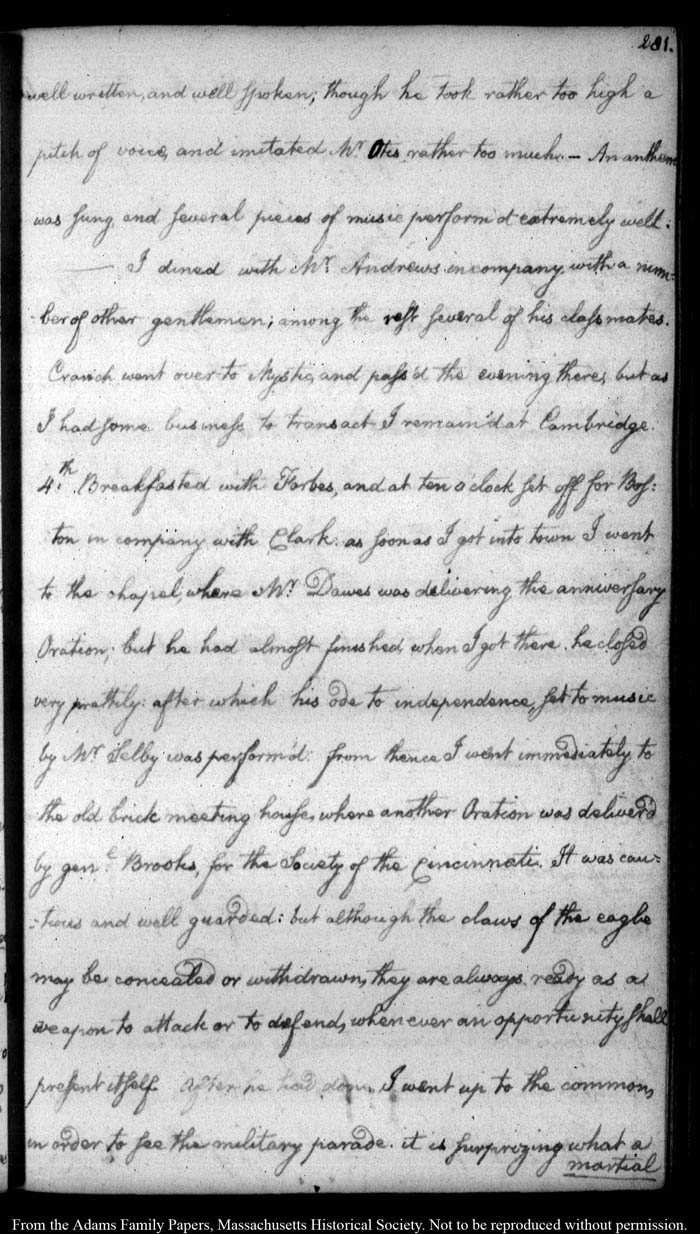 281.
well written, and well spoken; though he took rather too high a
pitch of voice, and imitated Mr. Otis rather too much. — An anthem
was sung, and several pieces of music perform'd extremely well.
— I dined with Mr. Andrews in company with a num=
ber of other gentlemen; among the rest several of his classmates.
Cranch went over to Mystic, and pass'd the evening there, but as
I had some business to transact I remain'd at Cambridge.
4th. Breakfasted with Forbes, and at ten o'clock set off for Bos:
ton in company with Clark: as soon as I got into town I went
to the chapel, where Mr. Dawes was delivering the anniversary
Oration; but he had almost finished when I got there. he closed
very prettily: after which his ode to independence, set to music
by Mr. Selby was perform'd: from thence I went immediately to
the old brick meeting house, where another Oration was deliver'd
by genl. Brooks, for the Society of the Cincinnati. It was cau=
=tious and well guarded: but although the claws of the eagle
may be concealed or withdrawn, they are always ready as a
weapon to attack or to defend, whenever an opportunity shall
present itself. After he had done, I went up to the common,
in order to see the military parade. it is surprizing what a
martial
From the Adams Family Papers, Massachusetts Historical Society. Not to be reproduced without permission.